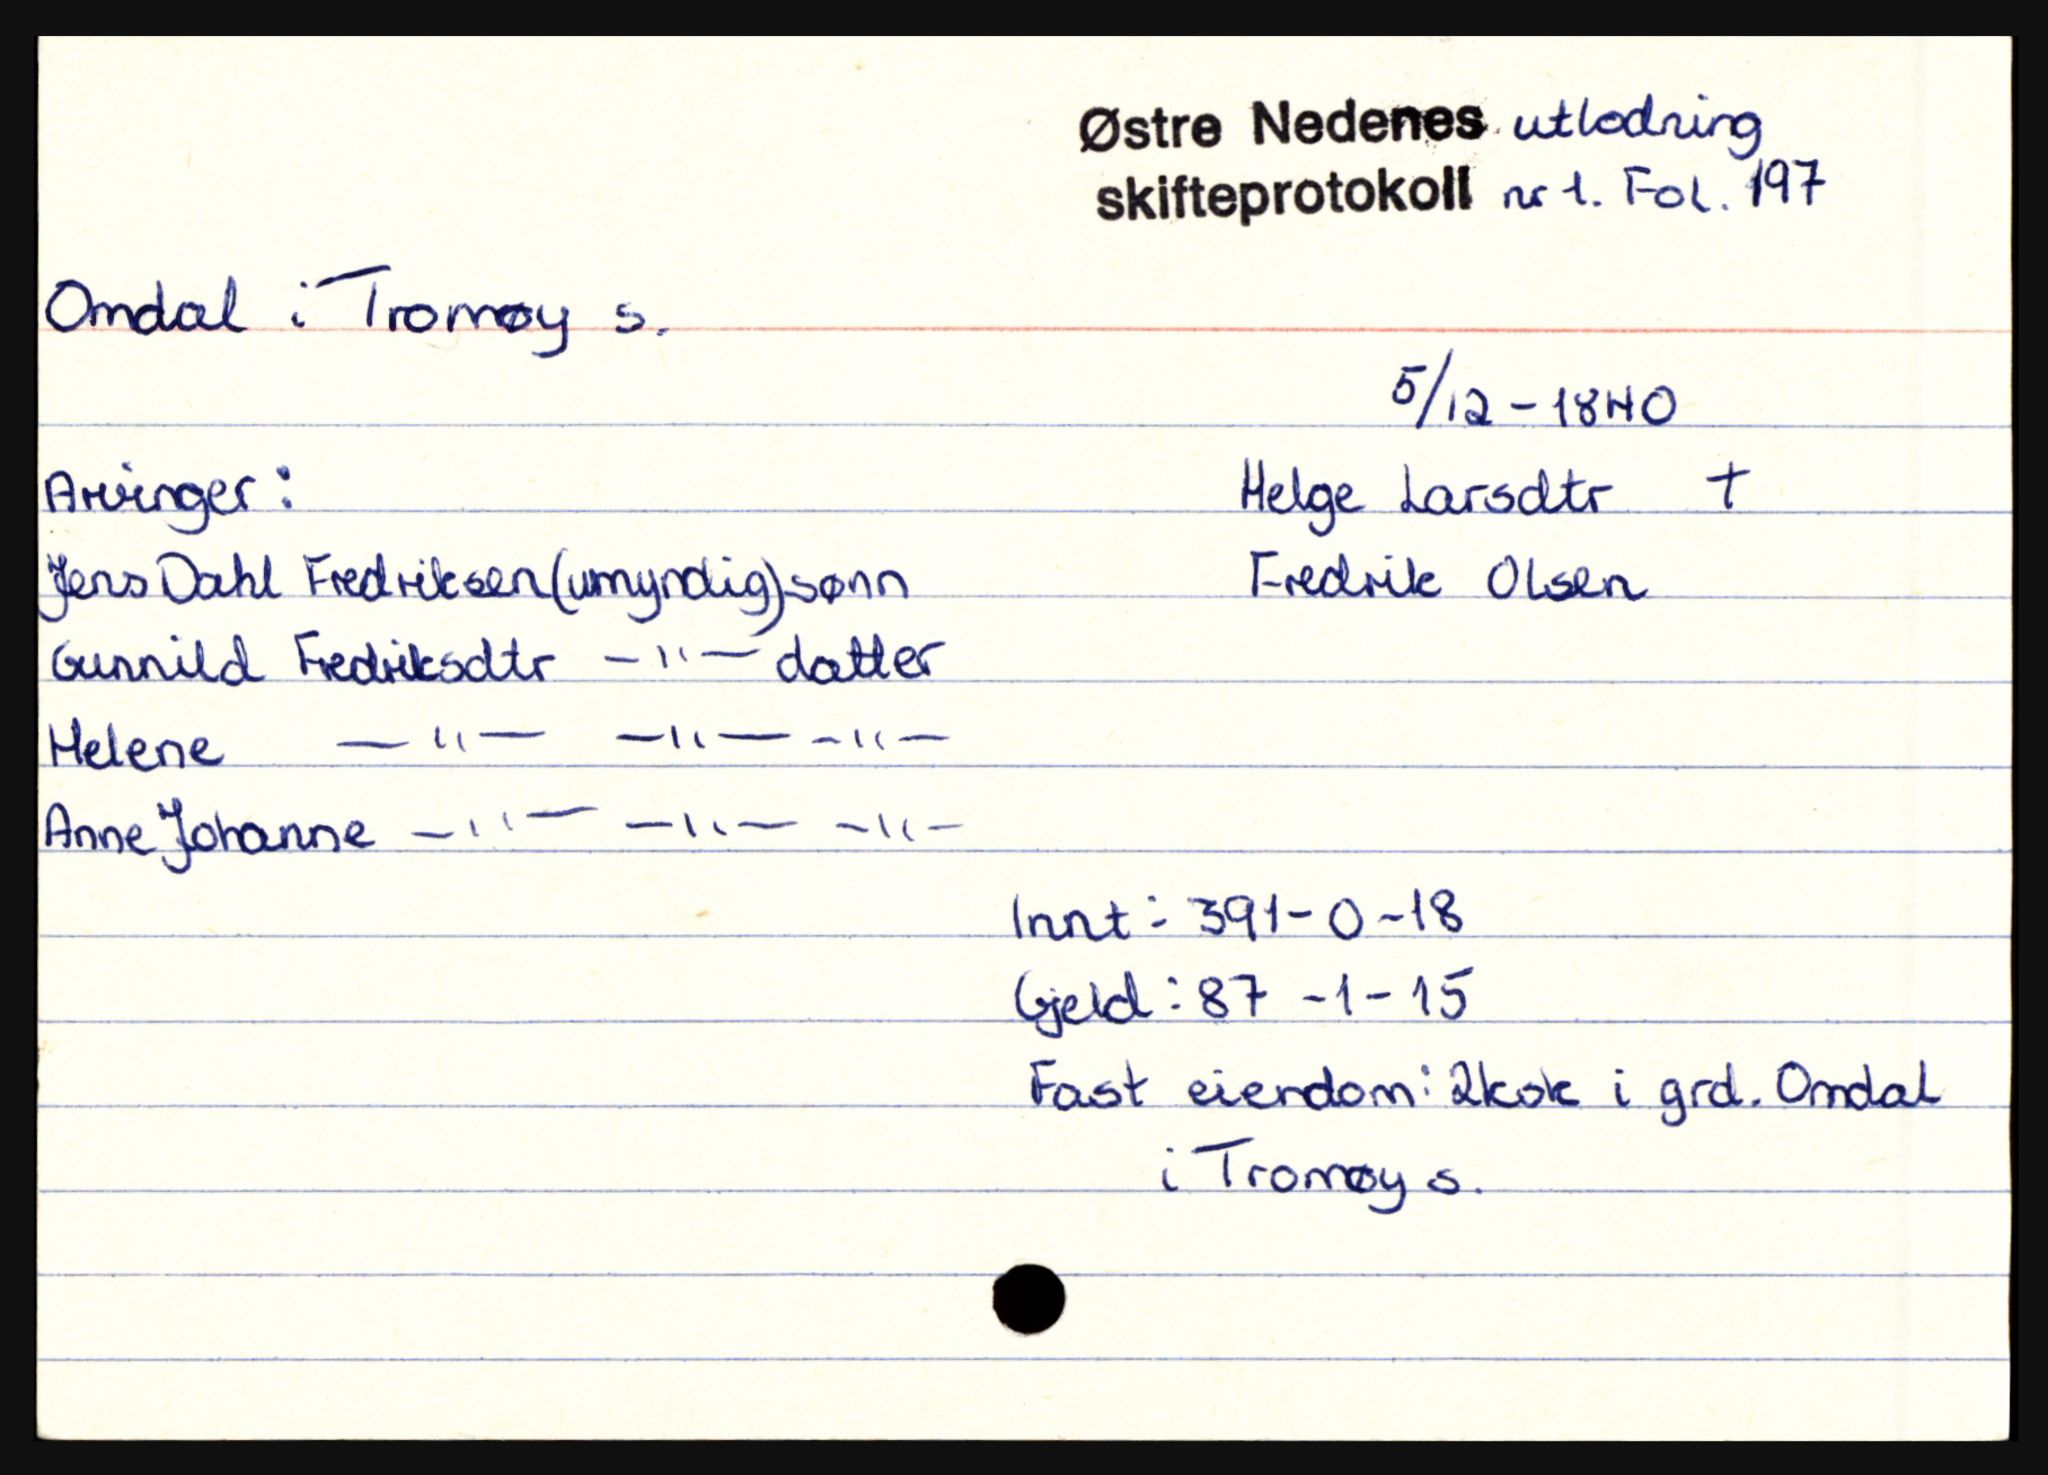 Østre Nedenes utlodning
skifteprotokoll nr 1. Fol. 197
Omdal i Tromøy s.
5/12 - 1840
Arvinger:
Helge Larsdtr †
Jens Dahl Fredriksen (umyndig) sønn
Fredrik Olsen
Gunnild Fredriksdtr -"- datter
Helene -"- -"- -"-
Anne Johanne -"- -"- -"-
Innt: 391-0-18
Gjeld: 87 -1-15
Fast eiendom: 2kok i grd. Omdal
i Tromøy s.